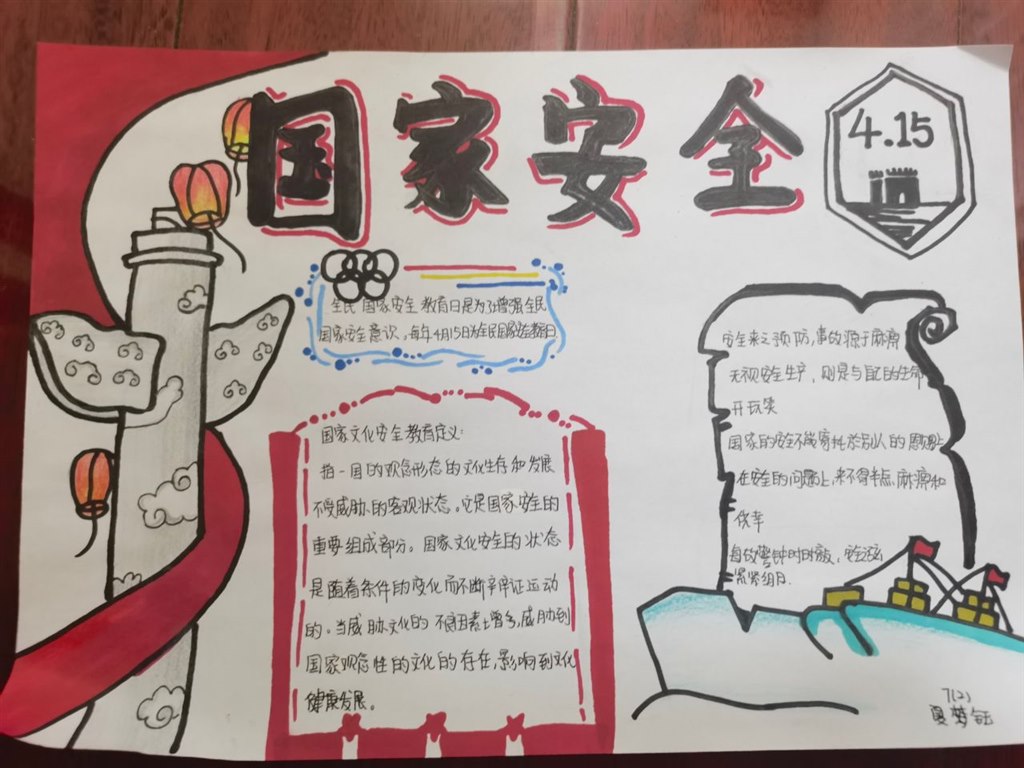 国家安全
4.15
全民国家安全教育日是为了增强全民
国家安全意识。每年4月15日为全民国家安全教育日.
国家文化安全教育定义:
指一国的观念形态的文化生存和发展
不受威胁的客观状态。它是国家安全的
重要组成部分。国家文化安全的状态
是随着条件的变化而不断辛辩证运动
的。当威胁文化的不得因素土曾多,威胁到
国家观念性的文化的存在,影响到文化
健康发展。
安全来之预防,事故源于麻痹
无视安全生产,则是与自己的生命
开玩笑
国家的安全不能寄托於别人的恩赐上
在安全的问题上,来不得半点麻痹和
侥幸
自故警钟时时敲,安全弦
紧紧绷.
7(2)
夏梦